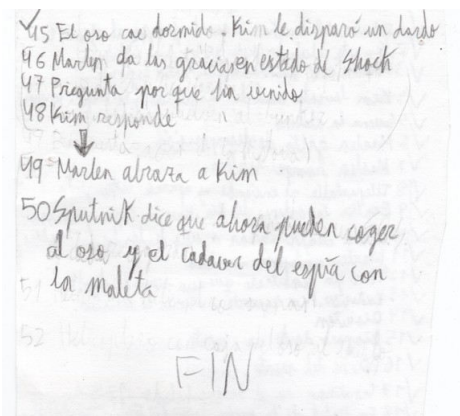 45 El oso cae dormido. Kim le disparó un dardo
46 Marlen da las gracias en estado de Shock
47 Pregunta por que han venido
48 Kim responde
49 Marlen abraza a Kim
50 Sputnik dice que ahora pueden coger
al oso y el cadaver del espía con
la maleta
51
52
FIN